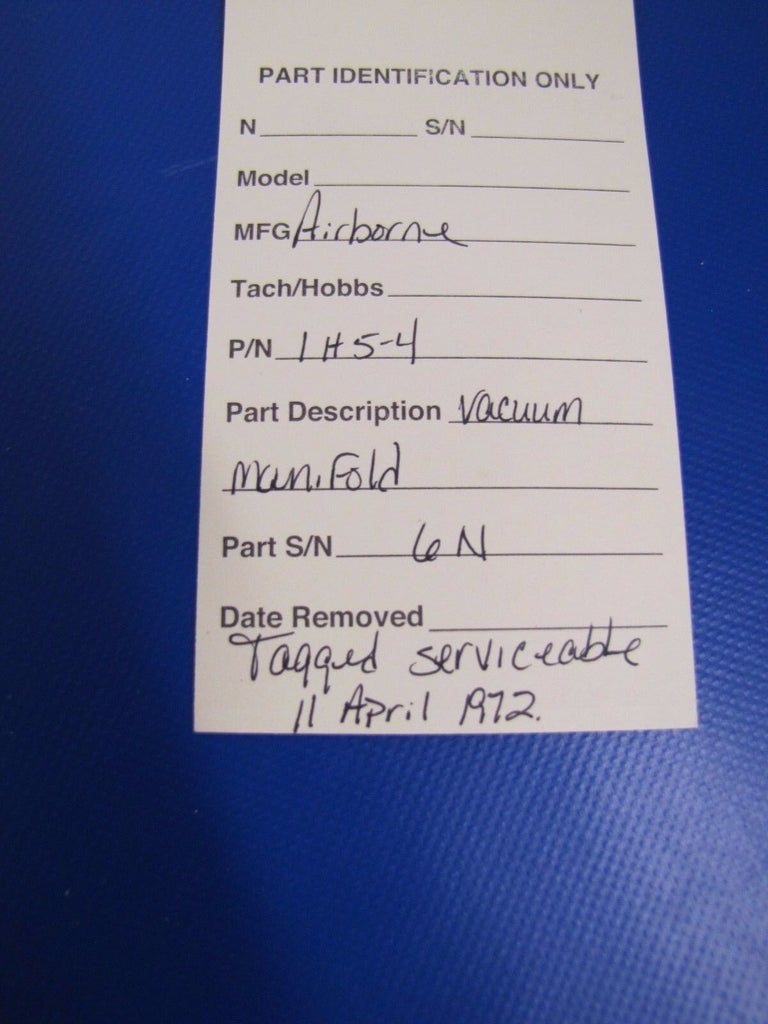 PART IDENTIFICATION ONLY
N S/N
Model
MFG Airborne
Tach/Hobbs
P/N 1H5-4
Part Description Vacuum
Manifold
Part S/N 6N
Date Removed
Tagged serviceable
11 April 1972.